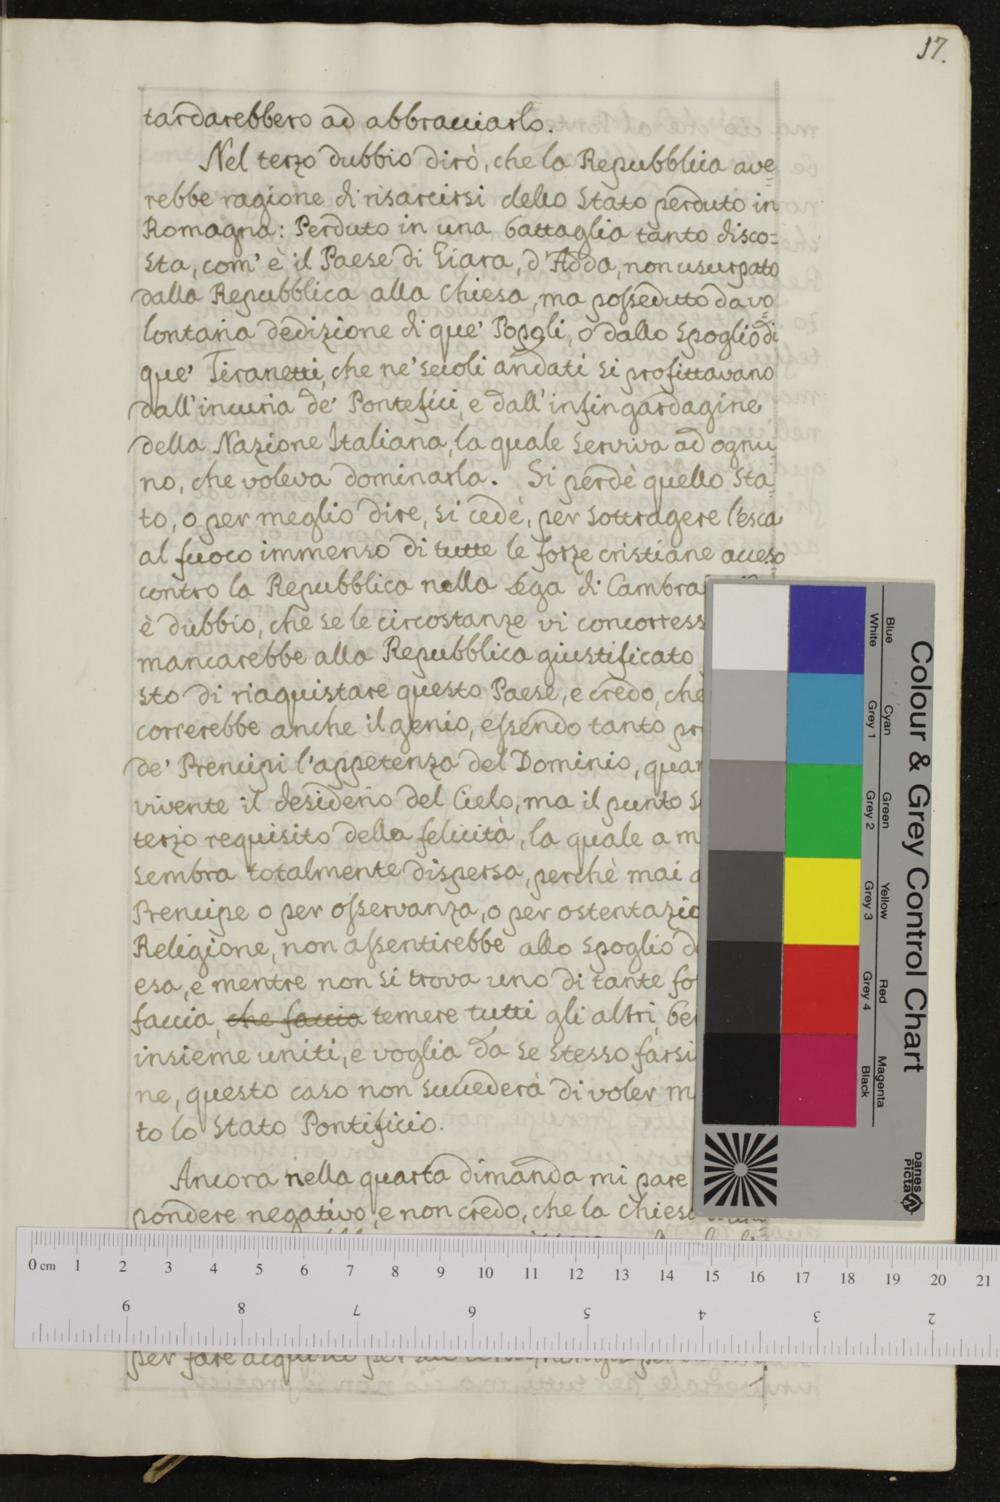 17.
tardarebbero ad abbracciarlo.
Nel terzo dubbio dirò, che la Repubblica ave=
rebbe ragione di risarcirsi dello Stato perduto in
Romagna: Perduto in una battaglia tanto disco=
sta, com' è il Paese di Giara, d'Adda, non usurpato
dalla Repubblica alla Chiesa, ma posseduto da vo=
lontaria dedizione di que' Popoli, o dallo spoglio di
que' Tiranetti, che ne' secoli andati si profittavano
dall'incuria de' Pontefici, e dall'infingardagine
della Nazione Italiana, la quale serviva ad ognu=
no, che voleva dominarla. Si perdè quello Sta=
to, o per meglio dire, si cedè, per sottragere l'esca
al fuoco immenso di tutte le forze cristiane acceso
contro la Repubblica nella Lega di Cambra
è dubbio, che se le circostanze vi concorress
mancarebbe alla Repubblica giustificato
sto di riaquistare questo Paese, e credo, che
correrebbe anche il genio, essendo tanto pr
de' Prencipi l'appetenza del Dominio, quan
vivente il desiderio del Cielo, ma il punto s
terzo requisito della felicità, la quale a m
sembra totalmente dispersa, perchè mai a
Prencipe o per osservanza, o per ostentazio
Religione, non assentirebbe allo spoglio d
esa, e mentre non si trova uno di tante fo
faccia, che faccia temere tutti gli altri, be
insieme uniti, e voglia da se stesso farsi
ne, questo caso non succederà di voler m
to lo Stato Pontificio.
Ancora nella quarta dimanda mi pare
pondere negativo, e non credo, che la Chiesa
per fare acquisti per
Colour & Grey Control Chart
Blue Cyan Green Yellow Red Magenta
White Grey 1 Grey 2 Grey 3 Grey 4 Black
Danes Picta
0 cm 1 2 3 4 5 6 7 8 9 10 11 12 13 14 15 16 17 18 19 20 21
9 8 7 6 5 4 3 2